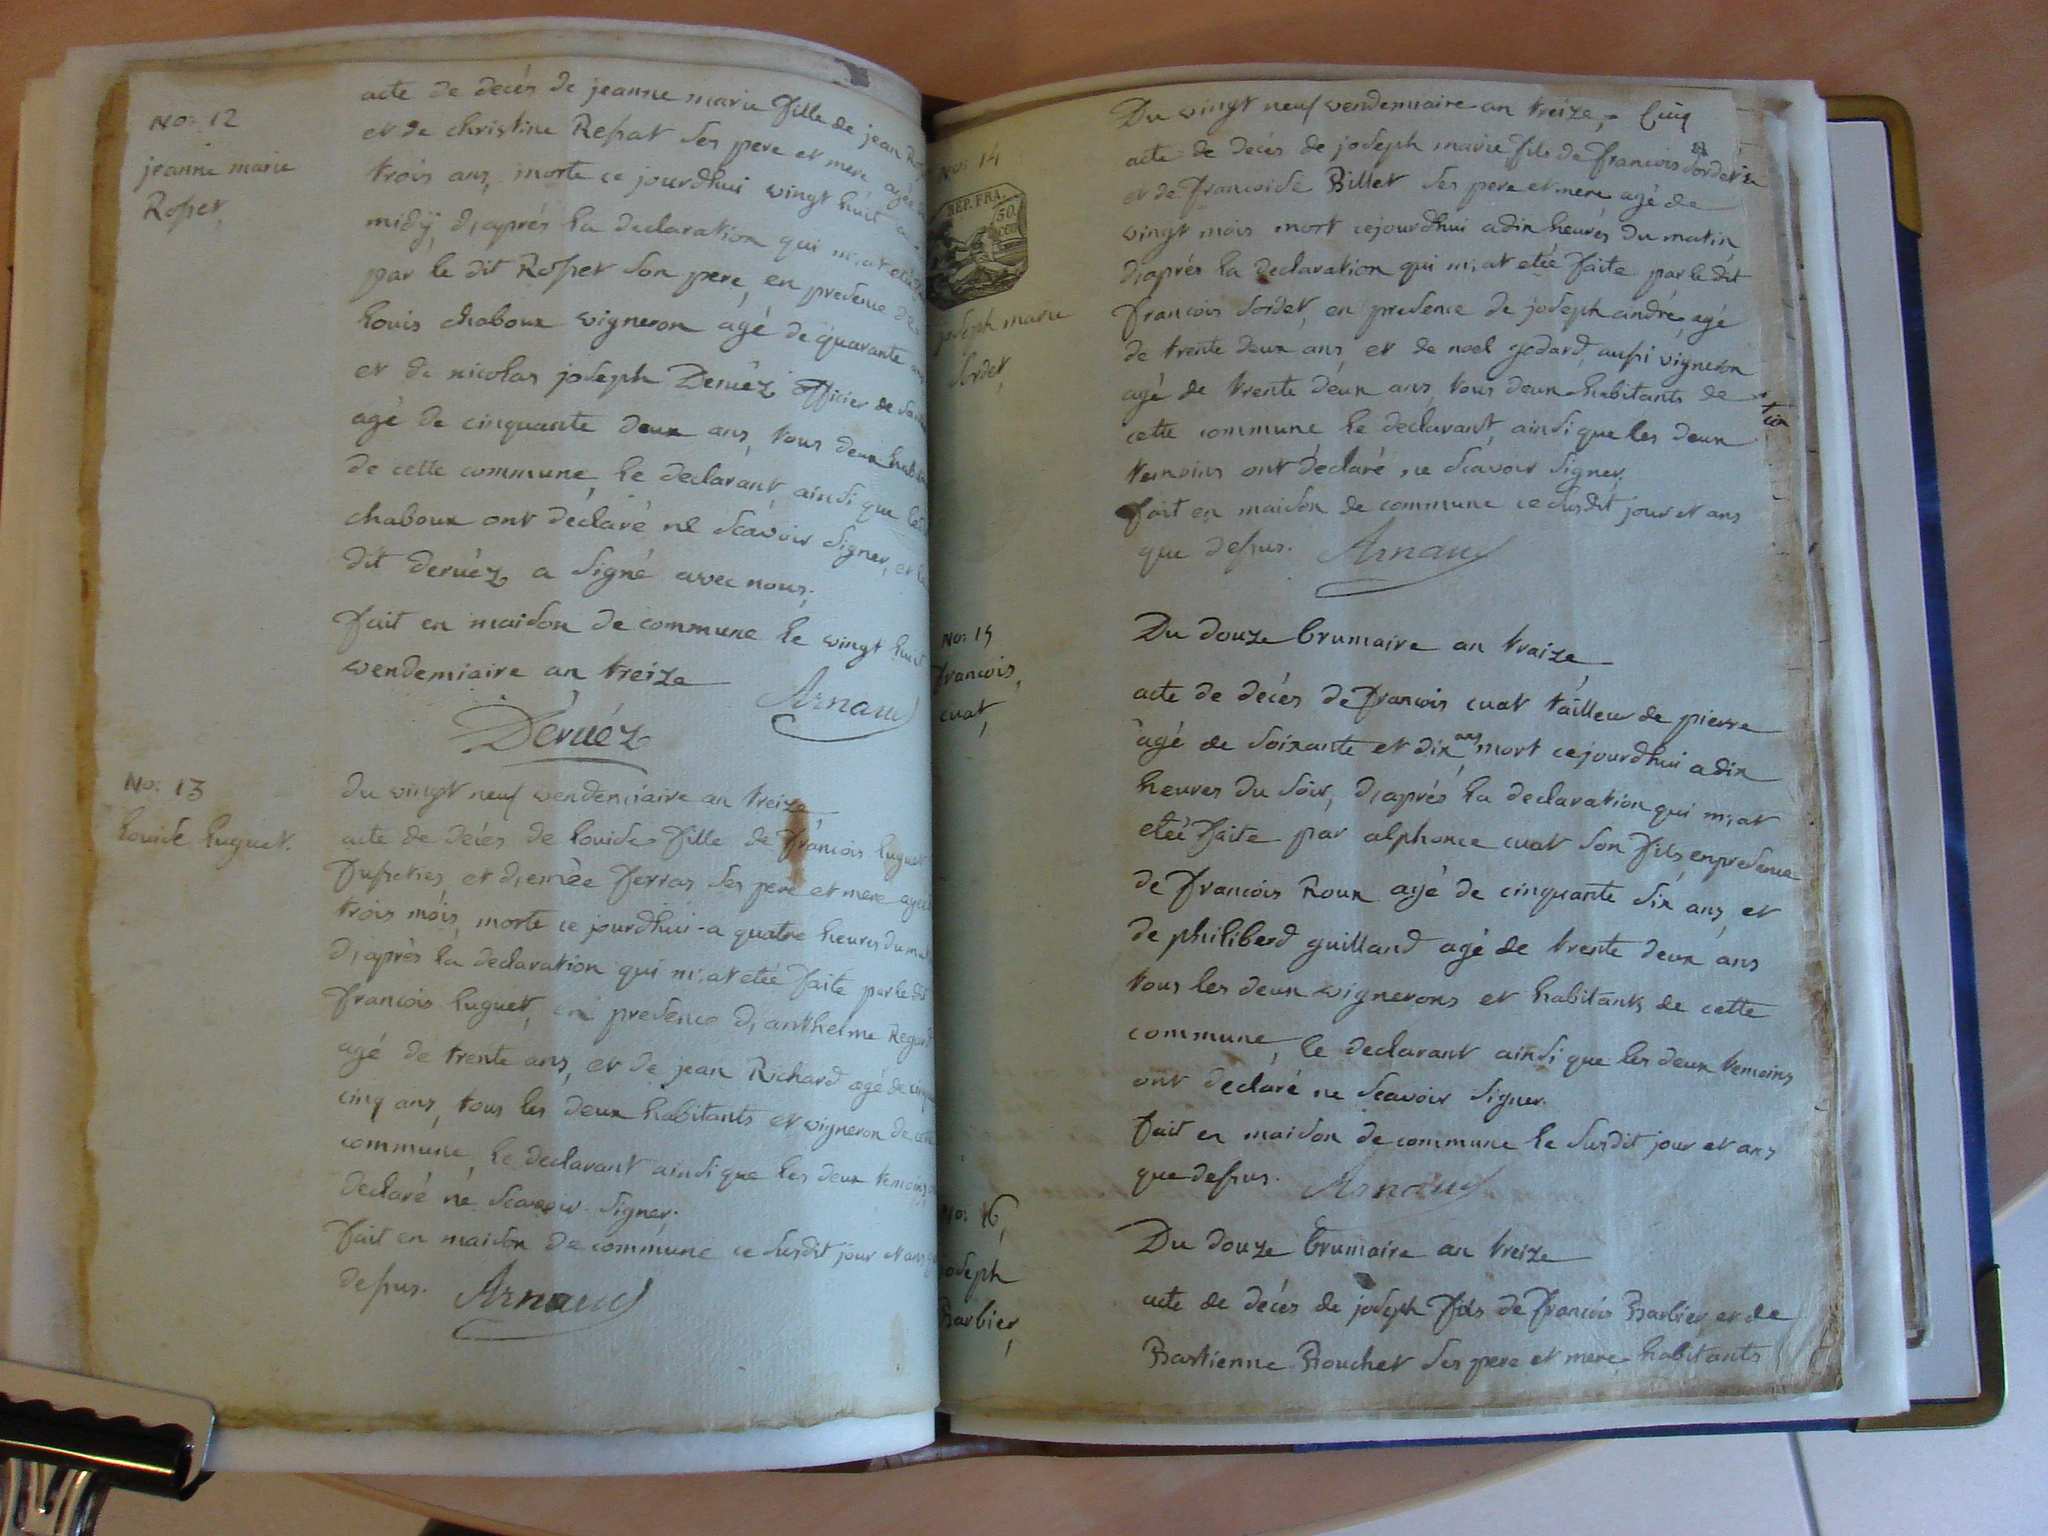 No: 12
jeanne marie
Rosset
acte de decés de jeanne marie fille de jean
et de christine Ressat ses pere et mere agée
trois ans, morte ce jourdhui vingt huit
midÿ, d,aprés la declaration qui m,at etée
par le dit Rosset son pere, en presence de
Louis chaboux vigneron agé de quarante
et de nicolas joseph Deruéz officier de
agé de cinquante deux ans, tous deux
de cette commune, le declarant, ainsi que
chaboux ont declaré ne Scavoir Signer, et
dit deruéz a Signé avec nous,
fait en maison de commune le vingt huit
vendemiaire an treize
Arnaud
Déruéz
No: 13
Louise luguet.
du vingt neuf vendemiaire an treize
acte de decés de Louise fille de francois luguet
et d,emée ferras Ses pere et mere agée
trois mois, morte ce jourdhui a quatre heures du
d,aprés la declaration qui m,at etée faite par le dit
francois luguet, en presence d,anthelme
agé de trente ans, et de jean Richard agé de
cinq ans, tous les deux habitants et vigneron de
commune, le declarant ainsi que les deux temoins
declaré né Scavoir Signer.
fait en maison de commune ce Susdit jour et ans
dessus. Arnaud
No: 14
REP. FRA.
50
joseph marie
Sordet,
Du vingt neuf vendemiaire an treize, Cinq
acte de decés de joseph marie fils de francois Sordet
et de francoise Billet Ses pere et mere agé de
vingt mois mort cejourdhui a dix heures du matin
d,aprés la declaration qui m,at etée faite par le dit
francois Sordet, en presence de joseph andré, agé
de trente deux ans, et de noel godard, aussi vigneron
agé de trente deux ans, tous deux habitants de
cette commune, le declarant, ainsi que les deux
temoins ont declaré ne Scavoir Signer.
fait en maison de commune ce Susdit jour et ans
que dessus. Arnaud
No: 15
francois,
cuat,
Du douze brumaire an traize
acte de decés de francois cuat tailleur de pierre
agé de Soixante et dix ans mort cejourdhui a dix
heures du Soir, d,aprés la declaration qui m,at
etée faite par alphonce cuat Son fils en presence
de francois Roux agé de cinquante Six ans, et
de philiberd guilland agé de trente deux ans
tous les deux vignerons et habitants de cette
commune, le declarant ainsi que les deux temoins
ont declaré ne Scavoir Signer.
fait en maison de commune le Susdit jour et ans
que dessus. Arnaud
No: 16,
joseph
Barbier,
Du douze brumaire an treize
acte de decés de joseph fils de francois Barbier et de
Bastienne Bouchet Ses pere et mere habitants